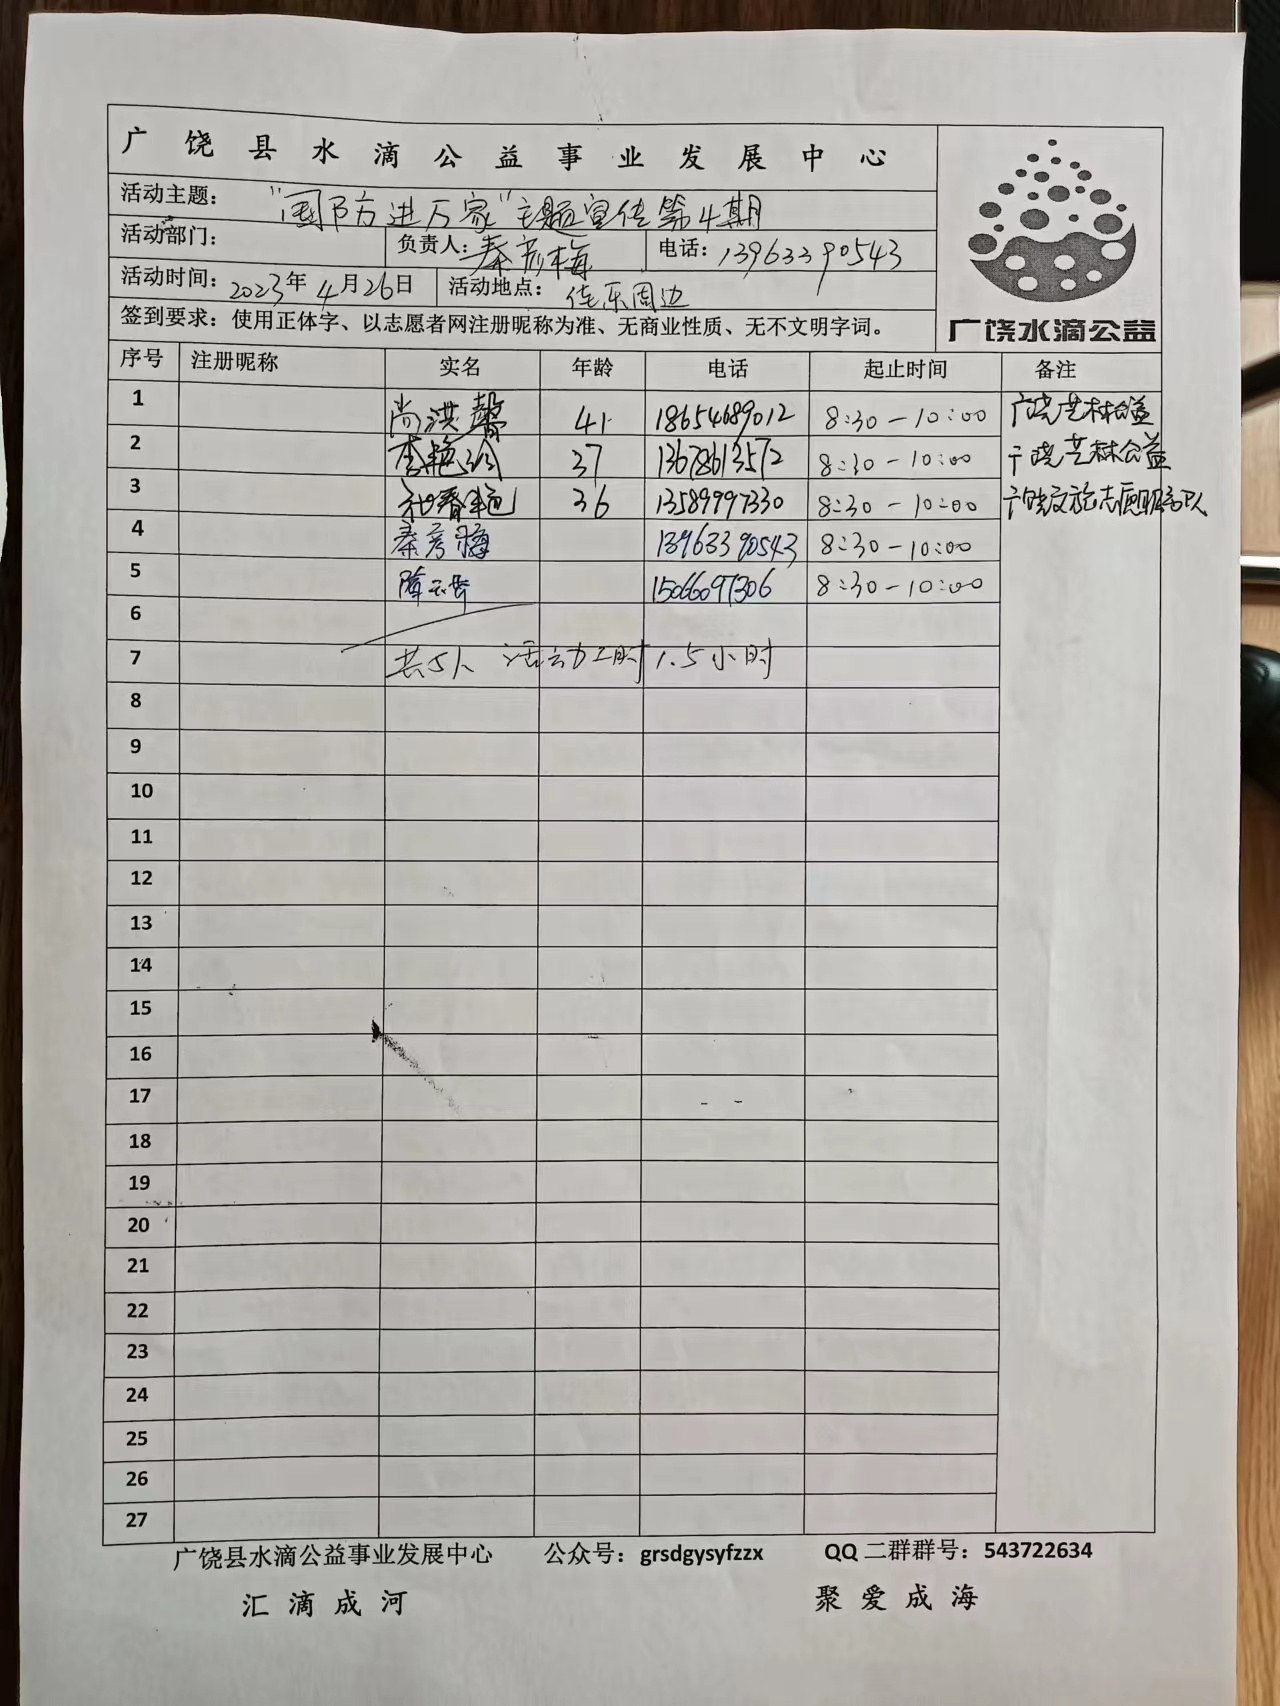 广饶县水滴公益事业发展中心
活动主题： "国防进万家"主题宣传第4期
活动部门： 负责人：秦彦梅 电话：13963390543
活动时间：2023年4月26日 活动地点：佳乐周边
签到要求：使用正体字、以志愿者网注册昵称为准、无商业性质、无不文明字词。
广饶水滴公益
序号 注册昵称 实名 年龄 电话 起止时间 备注
1 尚洪馨 41 18654689012 8:30-10:00 广饶艺林公益
2 李艳玲 37 13678613572 8:30-10:00 广饶艺林公益
3 春艳 36 13589997330 8:30-10:00 广饶文旅志愿服务队
4 秦彦梅 13963390543 8:30-10:00
5 15066097306 8:30-10:00
6
7 共5人 活动工时1.5小时
8
9
10
11
12
13
14
15
16
17
18
19
20
21
22
23
24
25
26
27
广饶县水滴公益事业发展中心 公众号：grsdgysyfzzx QQ二群群号：543722634
汇滴成河 聚爱成海